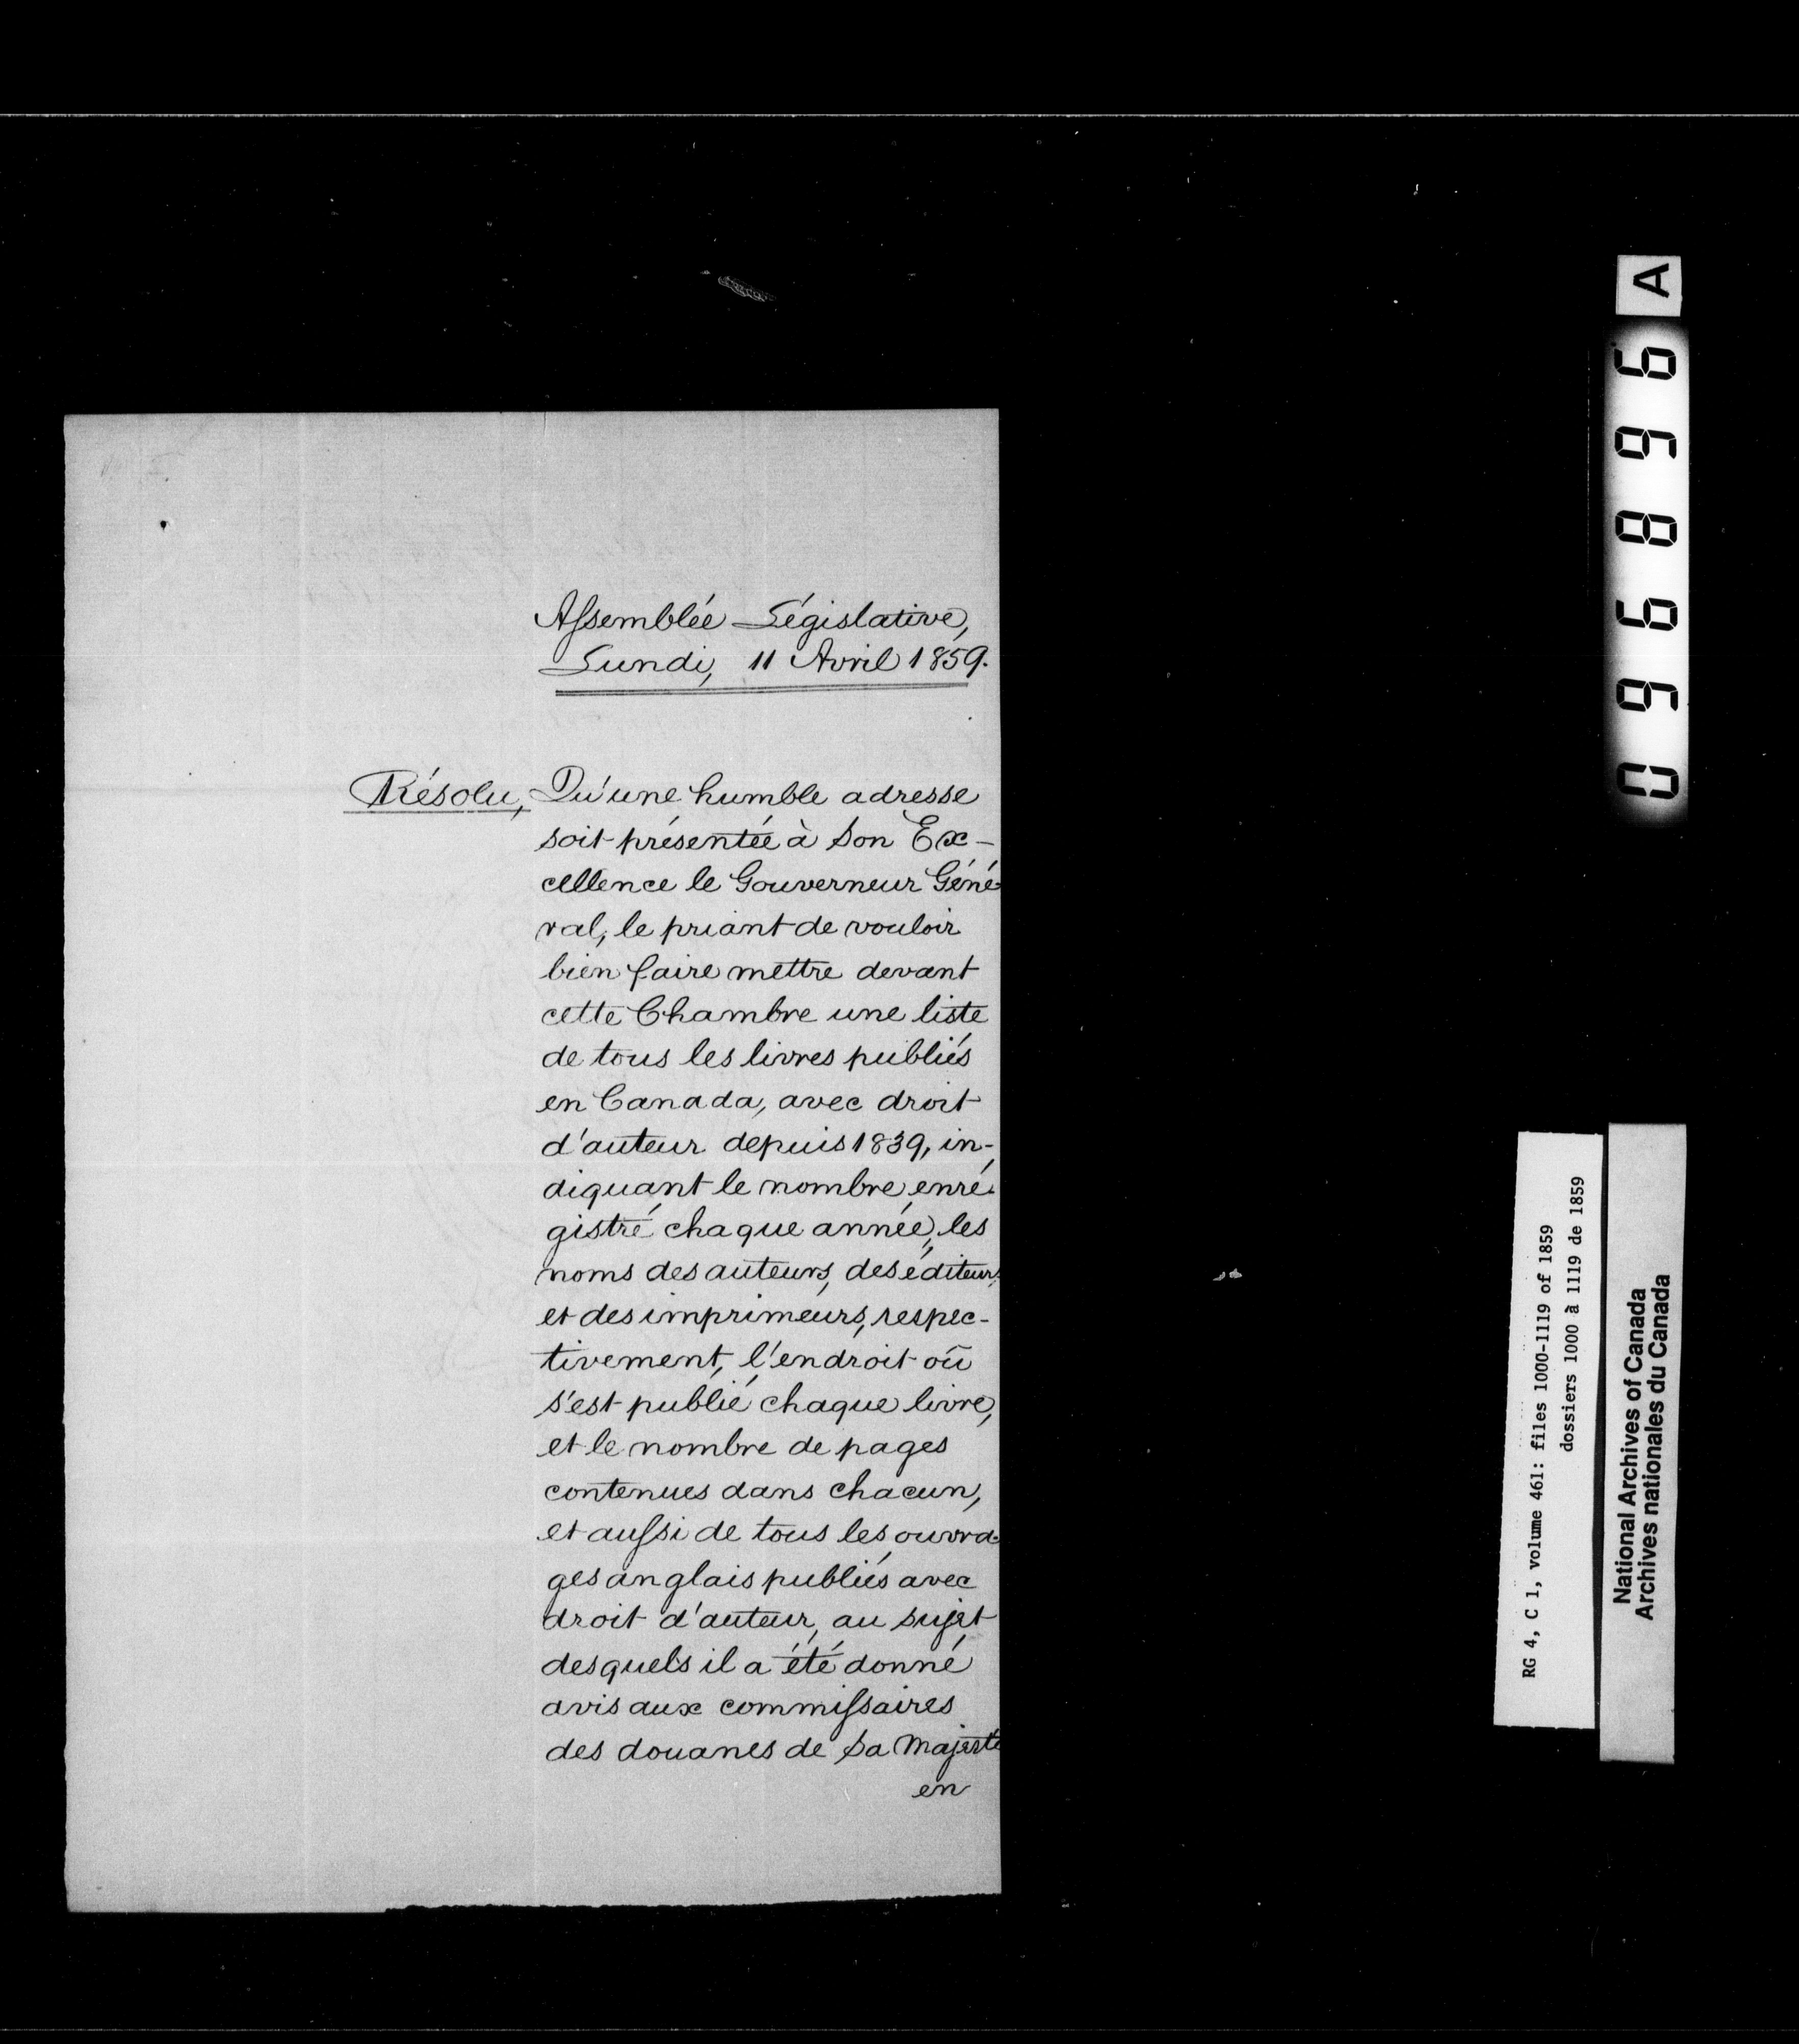 Assemblée Législative,
Lundi, 11 Avril 1859.
Résolu, Qu'une humble adresse
soit présentée à Son Ex-
cellence le Gouverneur Géné-
ral, le priant de vouloir
bien faire mettre devant
cette Chambre une liste
de tous les livres publiés
en Canada, avec droit
d'auteur depuis 1839, in-
diquant le nombre enré-
gistré chaque année, les
noms des auteurs, des éditeurs,
et des imprimeurs, respec-
tivement, l'endroit où
s'est publié chaque livre,
et le nombre de pages
contenues dans chacun,
et aussi de tous les ouvra-
ges anglais publiés avec
droit d'auteur, au sujet
desquels il a été donné
avis aux commissaires
des douanes de Sa Majesté
en
A
096896
RG 4, C 1, volume 461: files 1000-1119 of 1859
dossiers 1000 à 1119 de 1859
National Archives of Canada
Archives nationales du Canada